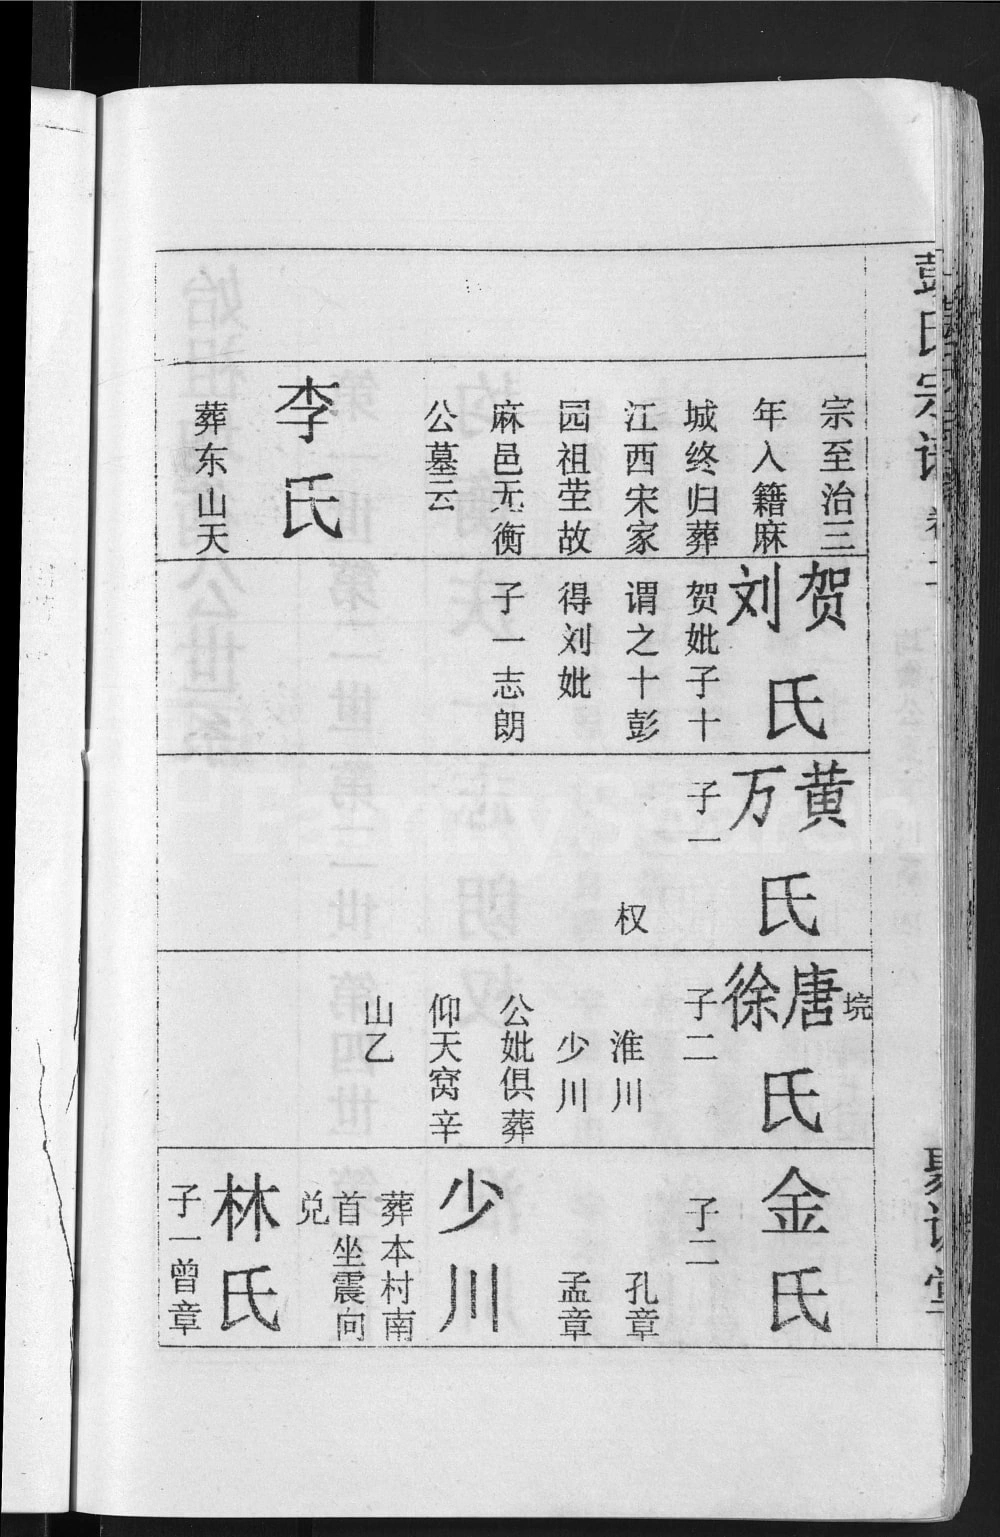 彭氏宗谱
卷二
聚
堂
宗至治三
年入籍麻
城终归葬
江西宋家
园祖茔故
麻邑无衡
公墓云
李氏
葬东山天
贺
刘
氏
贺妣子十
谓之十彭
得刘妣
子一志朗
黄
万
氏
子一
权
垸
唐
徐
氏
子二
淮川
少川
公妣俱葬
仰天窝辛
山乙
金氏
子二
孔章
孟章
少川
葬本村南
首坐震向
兑
林氏
子一曾章